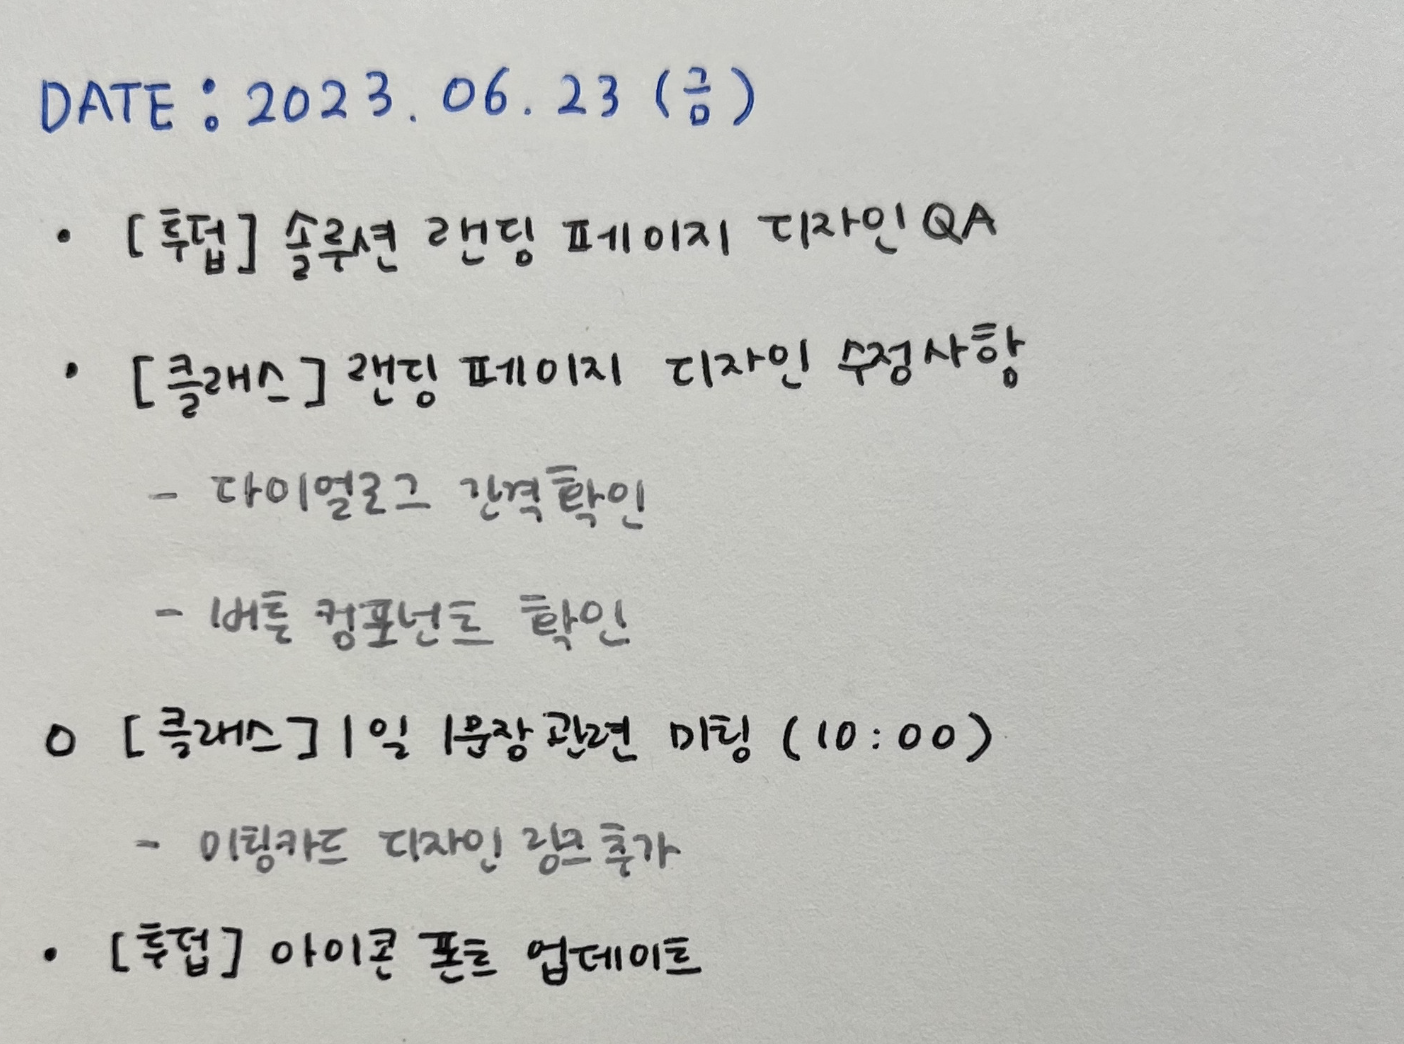 DATE : 2023. 06. 23 (금)
• [투덥] 솔루션 랜딩 페이지 디자인 QA
• [클래스] 랜딩 페이지 디자인 수정사항
- 다이얼로그 간격 확인
- 버튼 컴포넌트 확인
○ [클래스] 1일 1문장 관련 미팅 (10:00)
- 이팅카드 디자인 링크 추가
• [투덥] 아이콘 폰트 업데이트